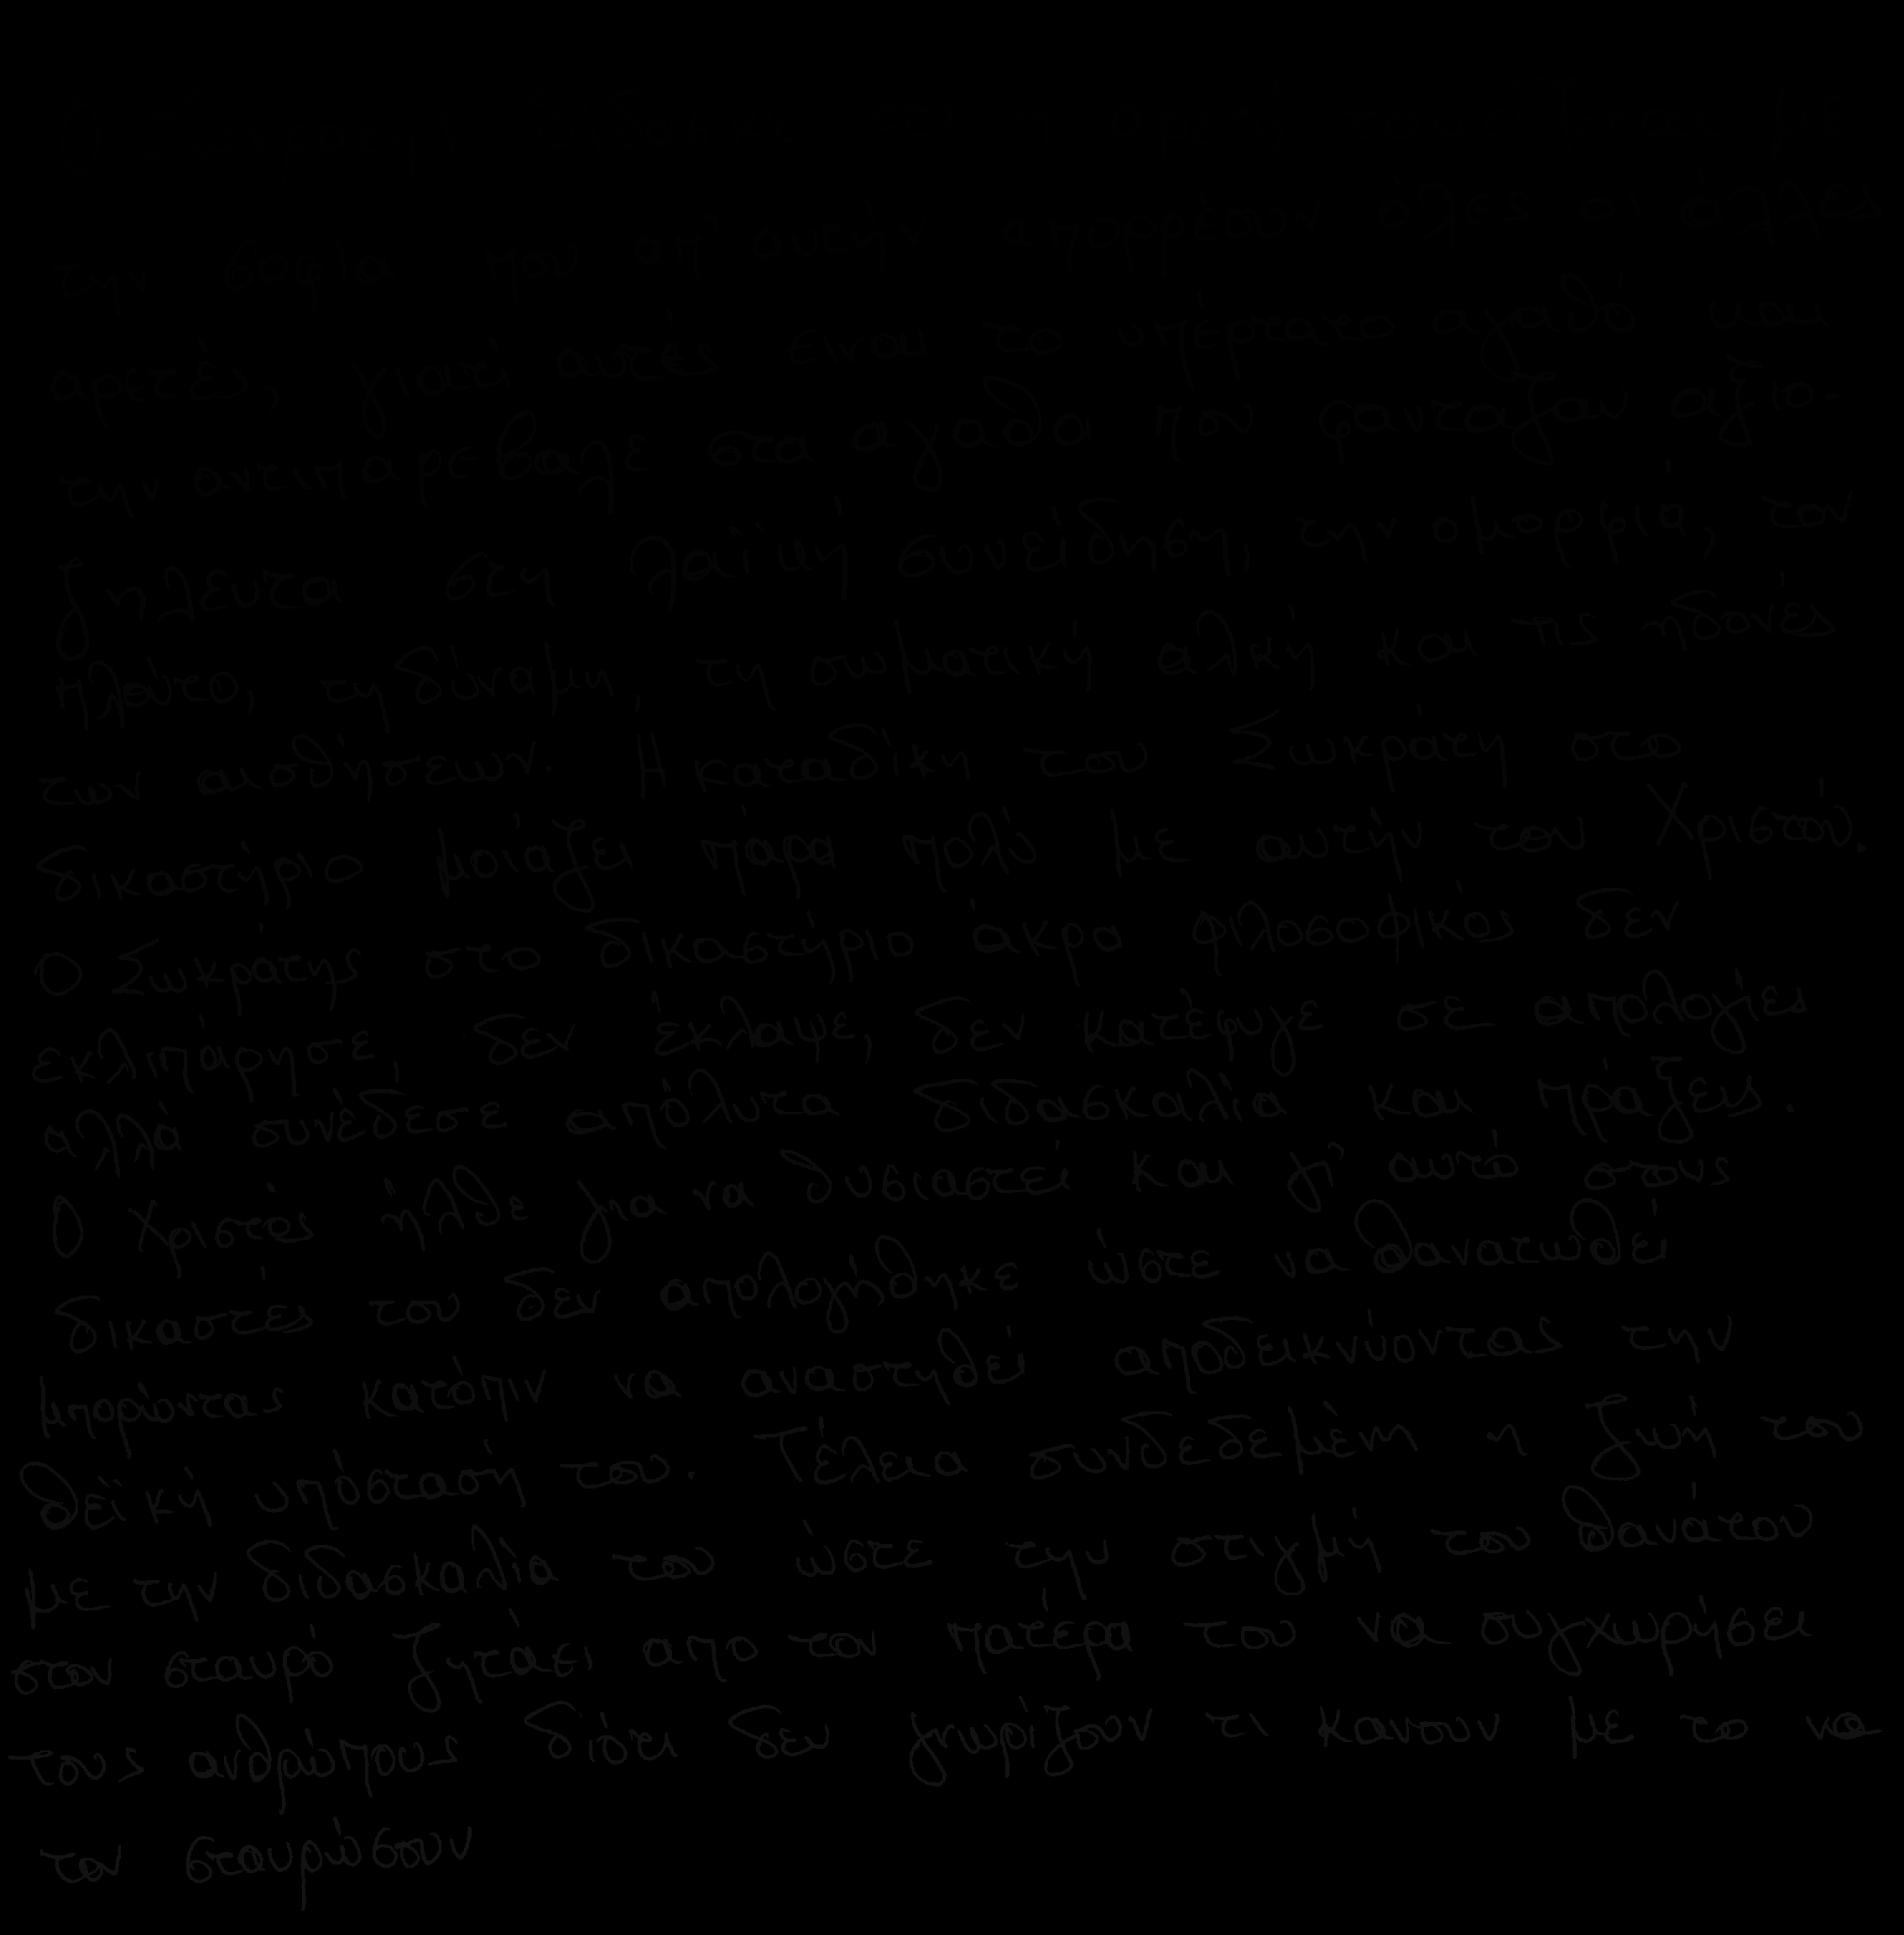 Ο Σωκράτης
την σοφία που απ' αυτήν απορρέουν όλες οι άλλες
αρετές, γιατί αυτές είναι το υπέρτατο αγαθό και
την αντιπαρεβαλε στα αγαθα που φανταζαν αξιο-
ζηλευτα στη λαϊκή συνείδηση, την ομορφιά, τον
πλούτο, τη δύναμη, τη σωματική αλκή και τις ηδονές
των αισθήσεων. Η καταδίκη του Σωκράτη στο
δικαστήριο μοιάζει πάρα πολύ με αυτήν του Χριστού.
Ο Σωκράτης στο δικαστήριο άκρα φιλοσοφικός δεν
εκλιπάρησε, δεν έκλαψε, δεν κατέφυγε σε απολογίες
αλλά συνέδεσε απόλυτα διδασκαλία και πράξεις.
Ο Χριστός ήλθε για να θυσιαστεί και γι' αυτό στους
δικαστές του δεν απολογήθηκε ώστε να θανατωθεί
μπορώντας κατόπιν να αναστηθεί αποδεικνύοντας την
θεϊκή υπόστασή του. Τέλεια συνδεδεμένη η ζωή του
με την διδασκαλία του ώστε την στιγμή του θανάτου
στον σταυρό ζητάει απο τον πατέρα του να συγχωρήσει
τους ανθρώπους διότι δεν γνωρίζουν τι κανουν με το να
τον σταυρώσουν